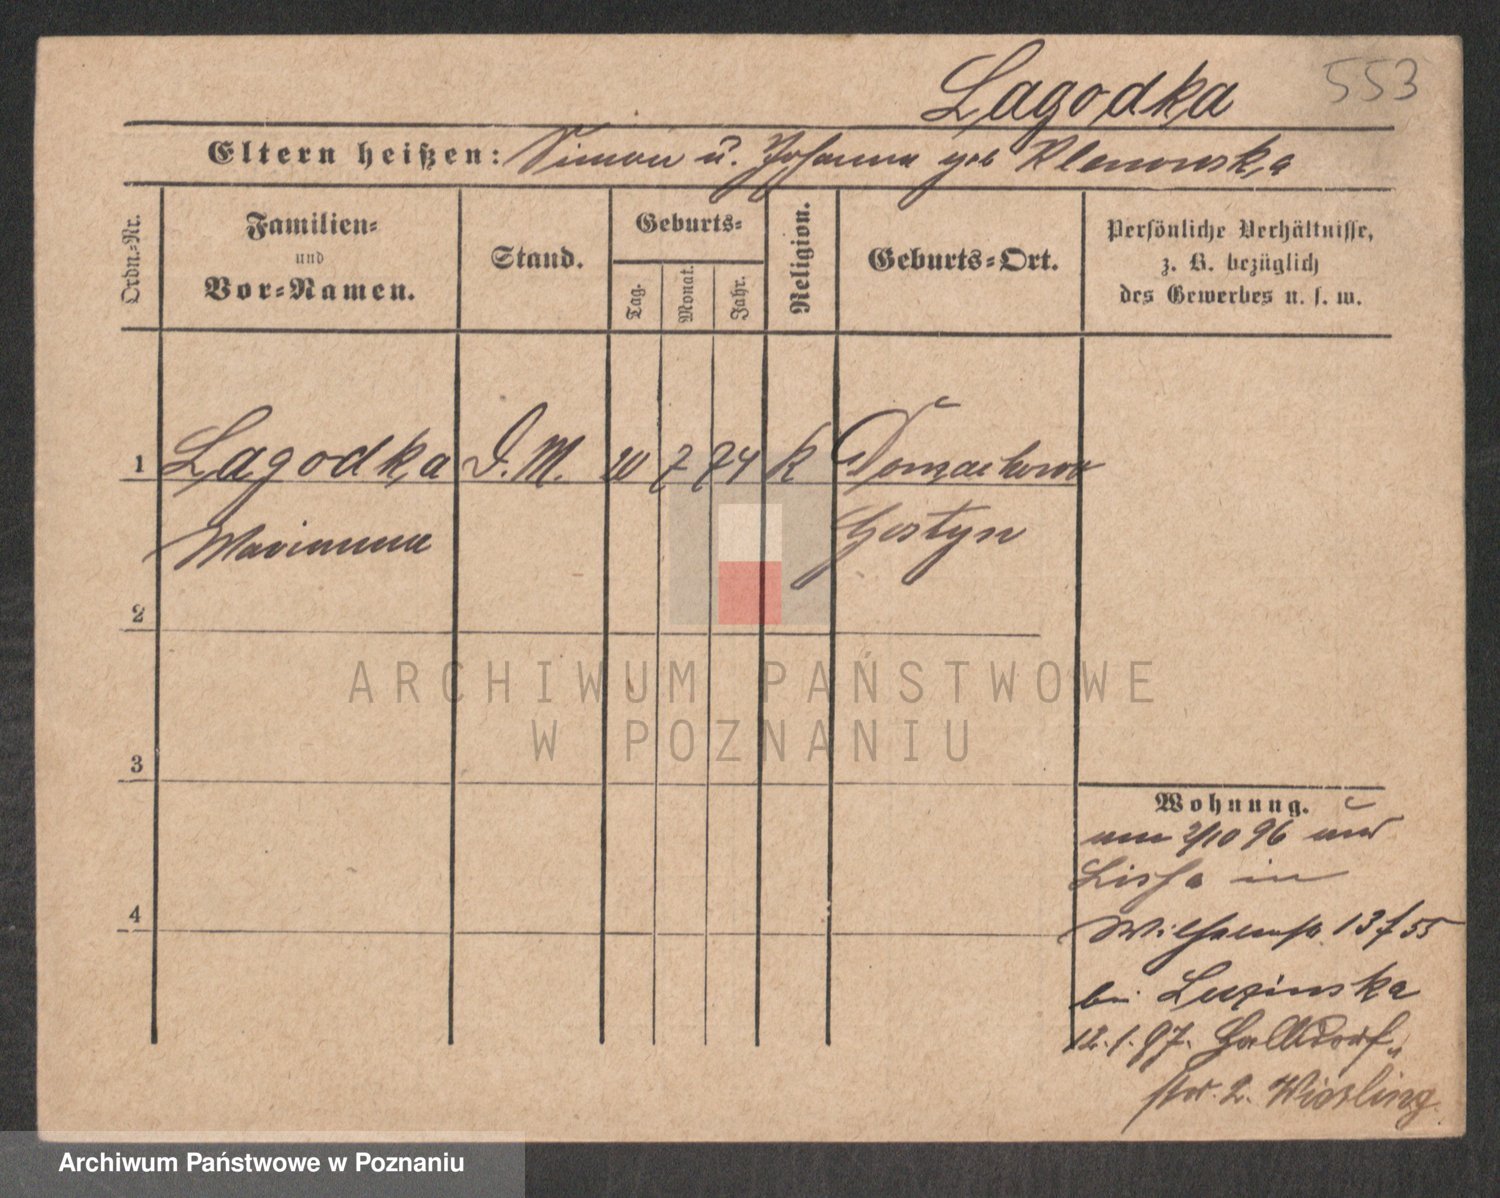 Lagodka 553
Eltern heißen: Simon u. Johanna geb Klanowska
Ordn.-Nr.
Familien-
und
Vor-Namen.
Stand.
Geburts-
Tag.
Monat.
Jahr.
Religion.
Geburts-Ort.
Persönliche Verhältnisse,
z. B. bezüglich
des Gewerbes u. s. w.
1 Lagodka D. M. 20 7 74 K Domachowo
Marianna Gostyn
2
3
4
Wohnung.
am 2/10 96
Lissa in
Wilhelmstr. 13
bei Luzinska
12.1.97. Halldorf-
str. 2. Wiesling
ARCHIWUM PAŃSTWOWE
W POZNANIU
Archiwum Państwowe w Poznaniu